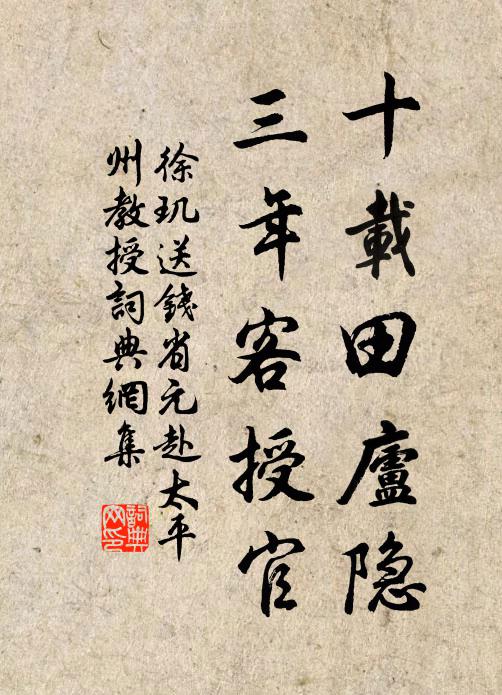 十載田廬隐
三年客授官
徐玑送錢省元赴太平
州教授詞典網集
詞典
网印